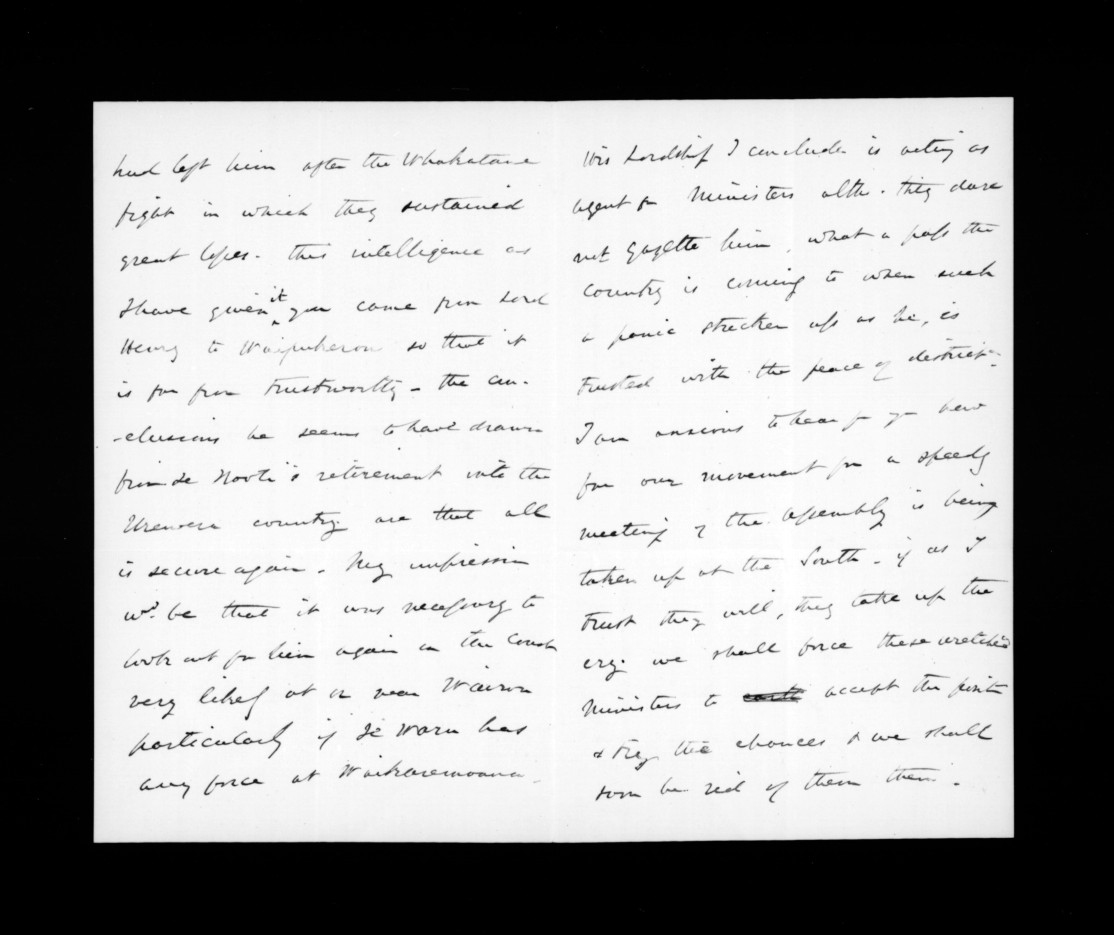 had left him after the Whakatane
fight in which they sustained
great losses. this intelligence as
I have given it you came from Lord
Henry to Waipukerau so that it
is far from trustworthy - the con-
-clusions he seems to have drawn
from Te Kooti's retirement into the
Urewera country are that all
is secure again. My impression
wd. be that it was necessary to
look out for him again on the Coast
very likely at or near Wairoa
particularly if Te Waru has
any force at Waikaremoana.
His Lordship I conclude is acting as
agent for Ministers altho. they dare
not Gazette him, what a pass the
country is coming to when such
a panic stricken as he, is
trusted with the peace of district.
I am anxious to hear fr you how
far our movement for a speedy
meeting of the Assembly is being
taken up at the South - if as I
trust they will, they take up the
cry we shall force these wretched
Ministers to accept the position
& try the chances & we shall
soon be rid of them then.